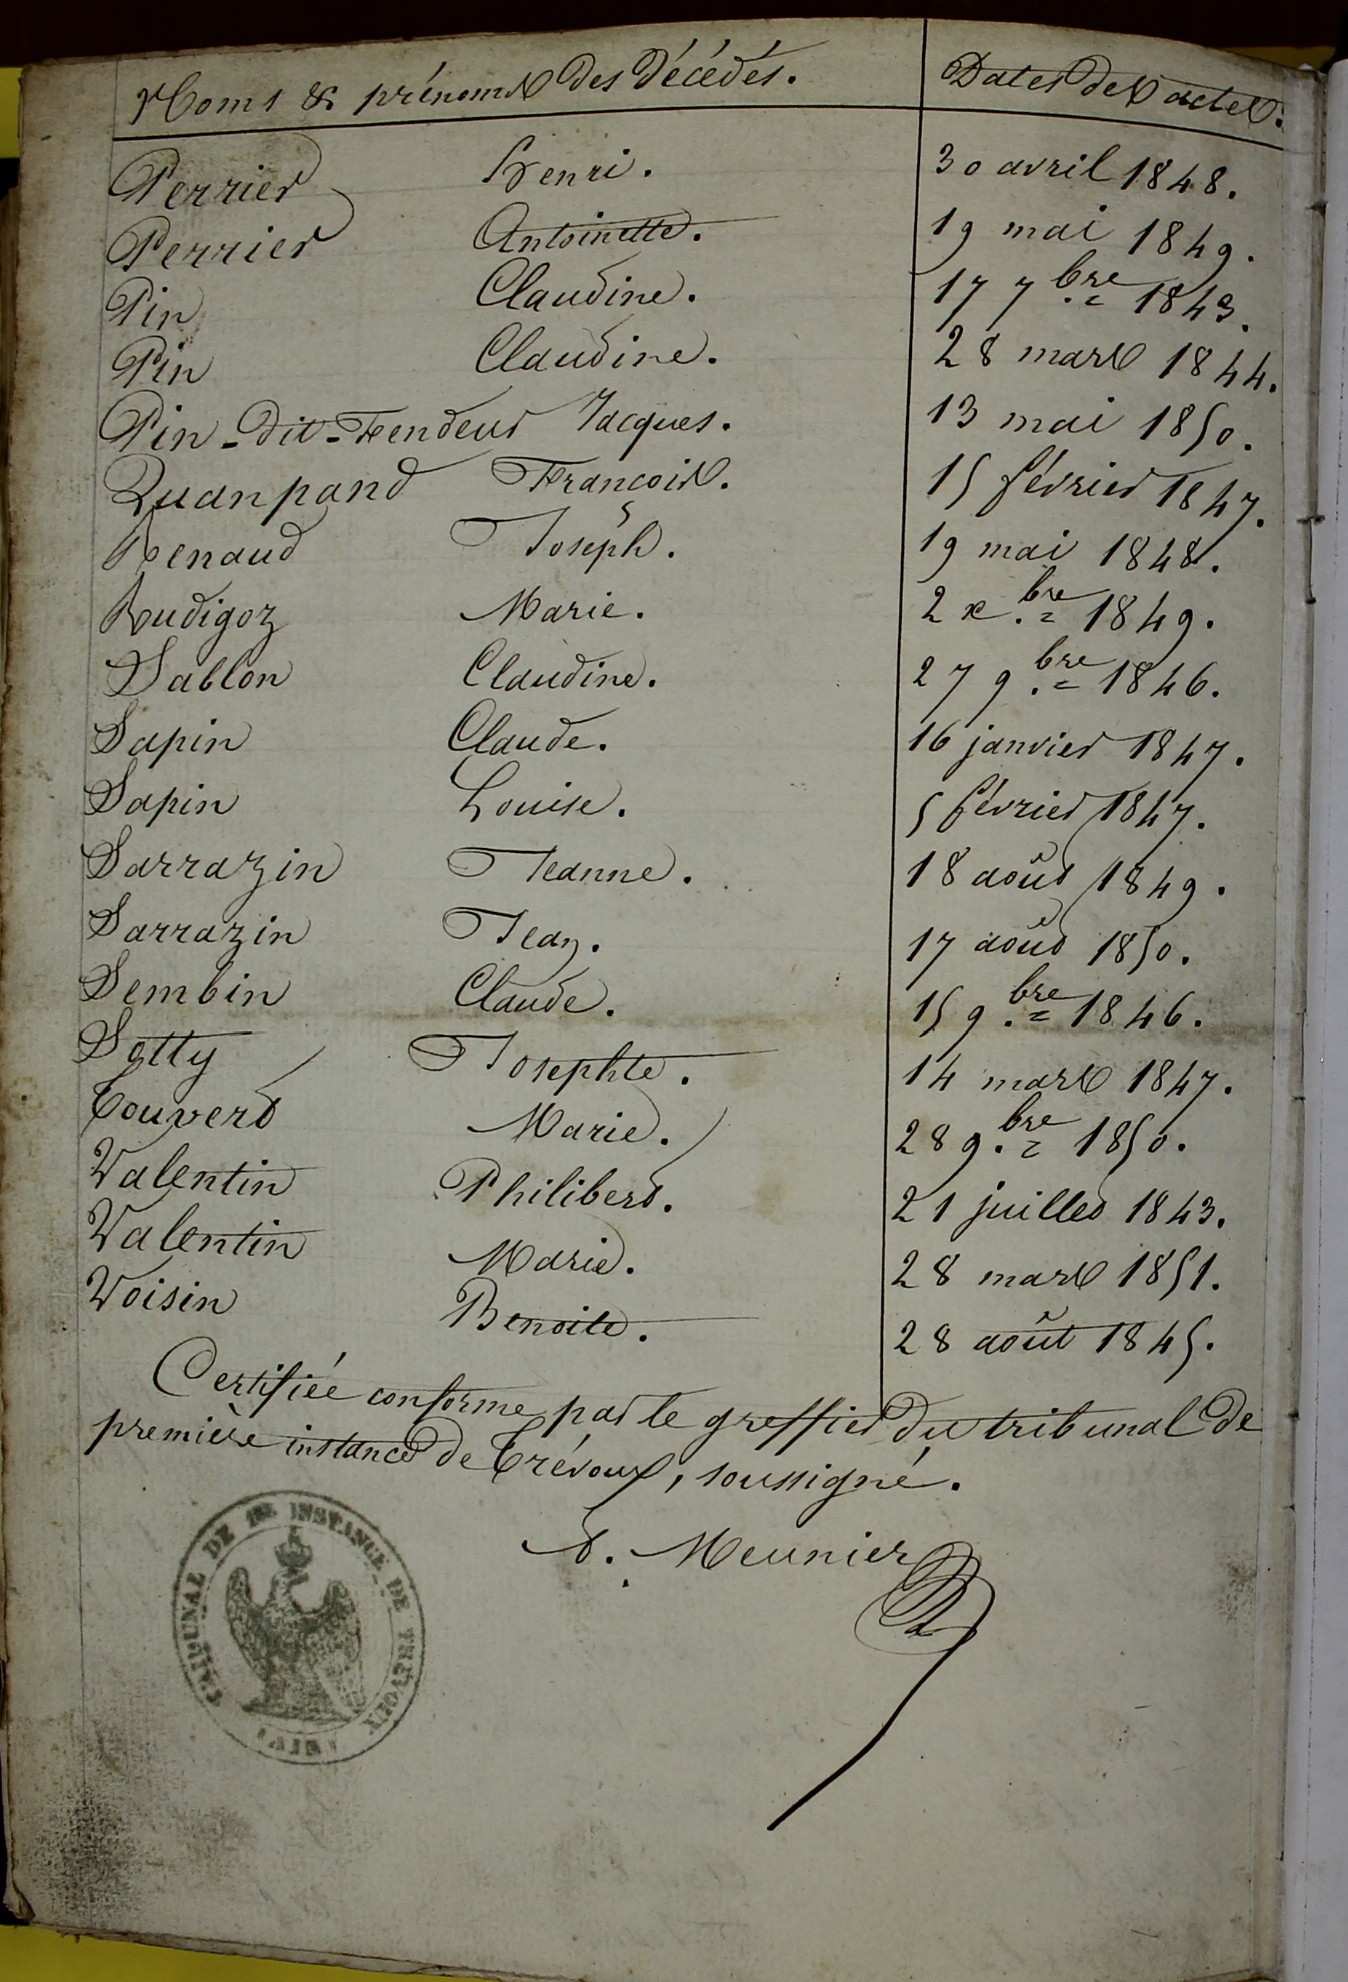 Noms & prénoms des Décédés. Dates des actes.
Perrier Henri. 30 avril 1848.
Perrier Antoinette. 19 mai 1849.
Pin Claudine. 17 7bre 1843.
Pin Claudine. 28 mars 1844.
Pin-dit-Fendeur Jacques. 13 mai 1850.
Quanpand François. 15 février 1847.
Renaud Joseph. 19 mai 1848.
Rudigoz Marie. 2 xbre 1849.
Sablon Claudine. 27 9bre 1846.
Sapin Claude. 16 janvier 1847.
Sapin Louise. 5 février 1847.
Sarrazin Jeanne. 18 août 1849.
Sarrazin Jean. 17 août 1850.
Sembin Claude. 15 9bre 1846.
Sotty Josephte. 14 mars 1847.
Touvert Marie. 28 9bre 1850.
Valentin Philibert. 21 juillet 1843.
Valentin Marie. 28 mars 1851.
Voisin Benoite. 28 août 1845.
Certifiée conforme par le greffier du tribunal de
première instance de Trévoux, soussigné.
Meunier
TRIBUNAL DE 1RE INSTANCE DE TRÉVOUX
(AIN)